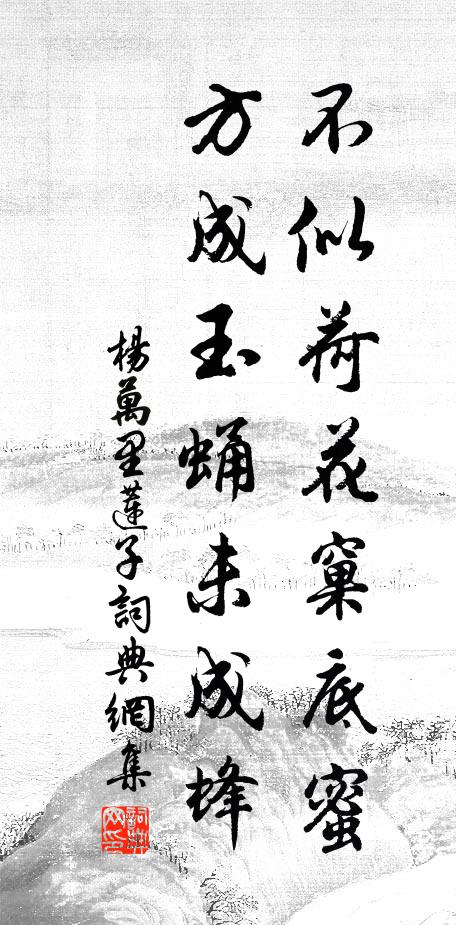 不似荷花窠底蜜
方成玉蛹未成蜂
楊萬里蓮子詞典網集